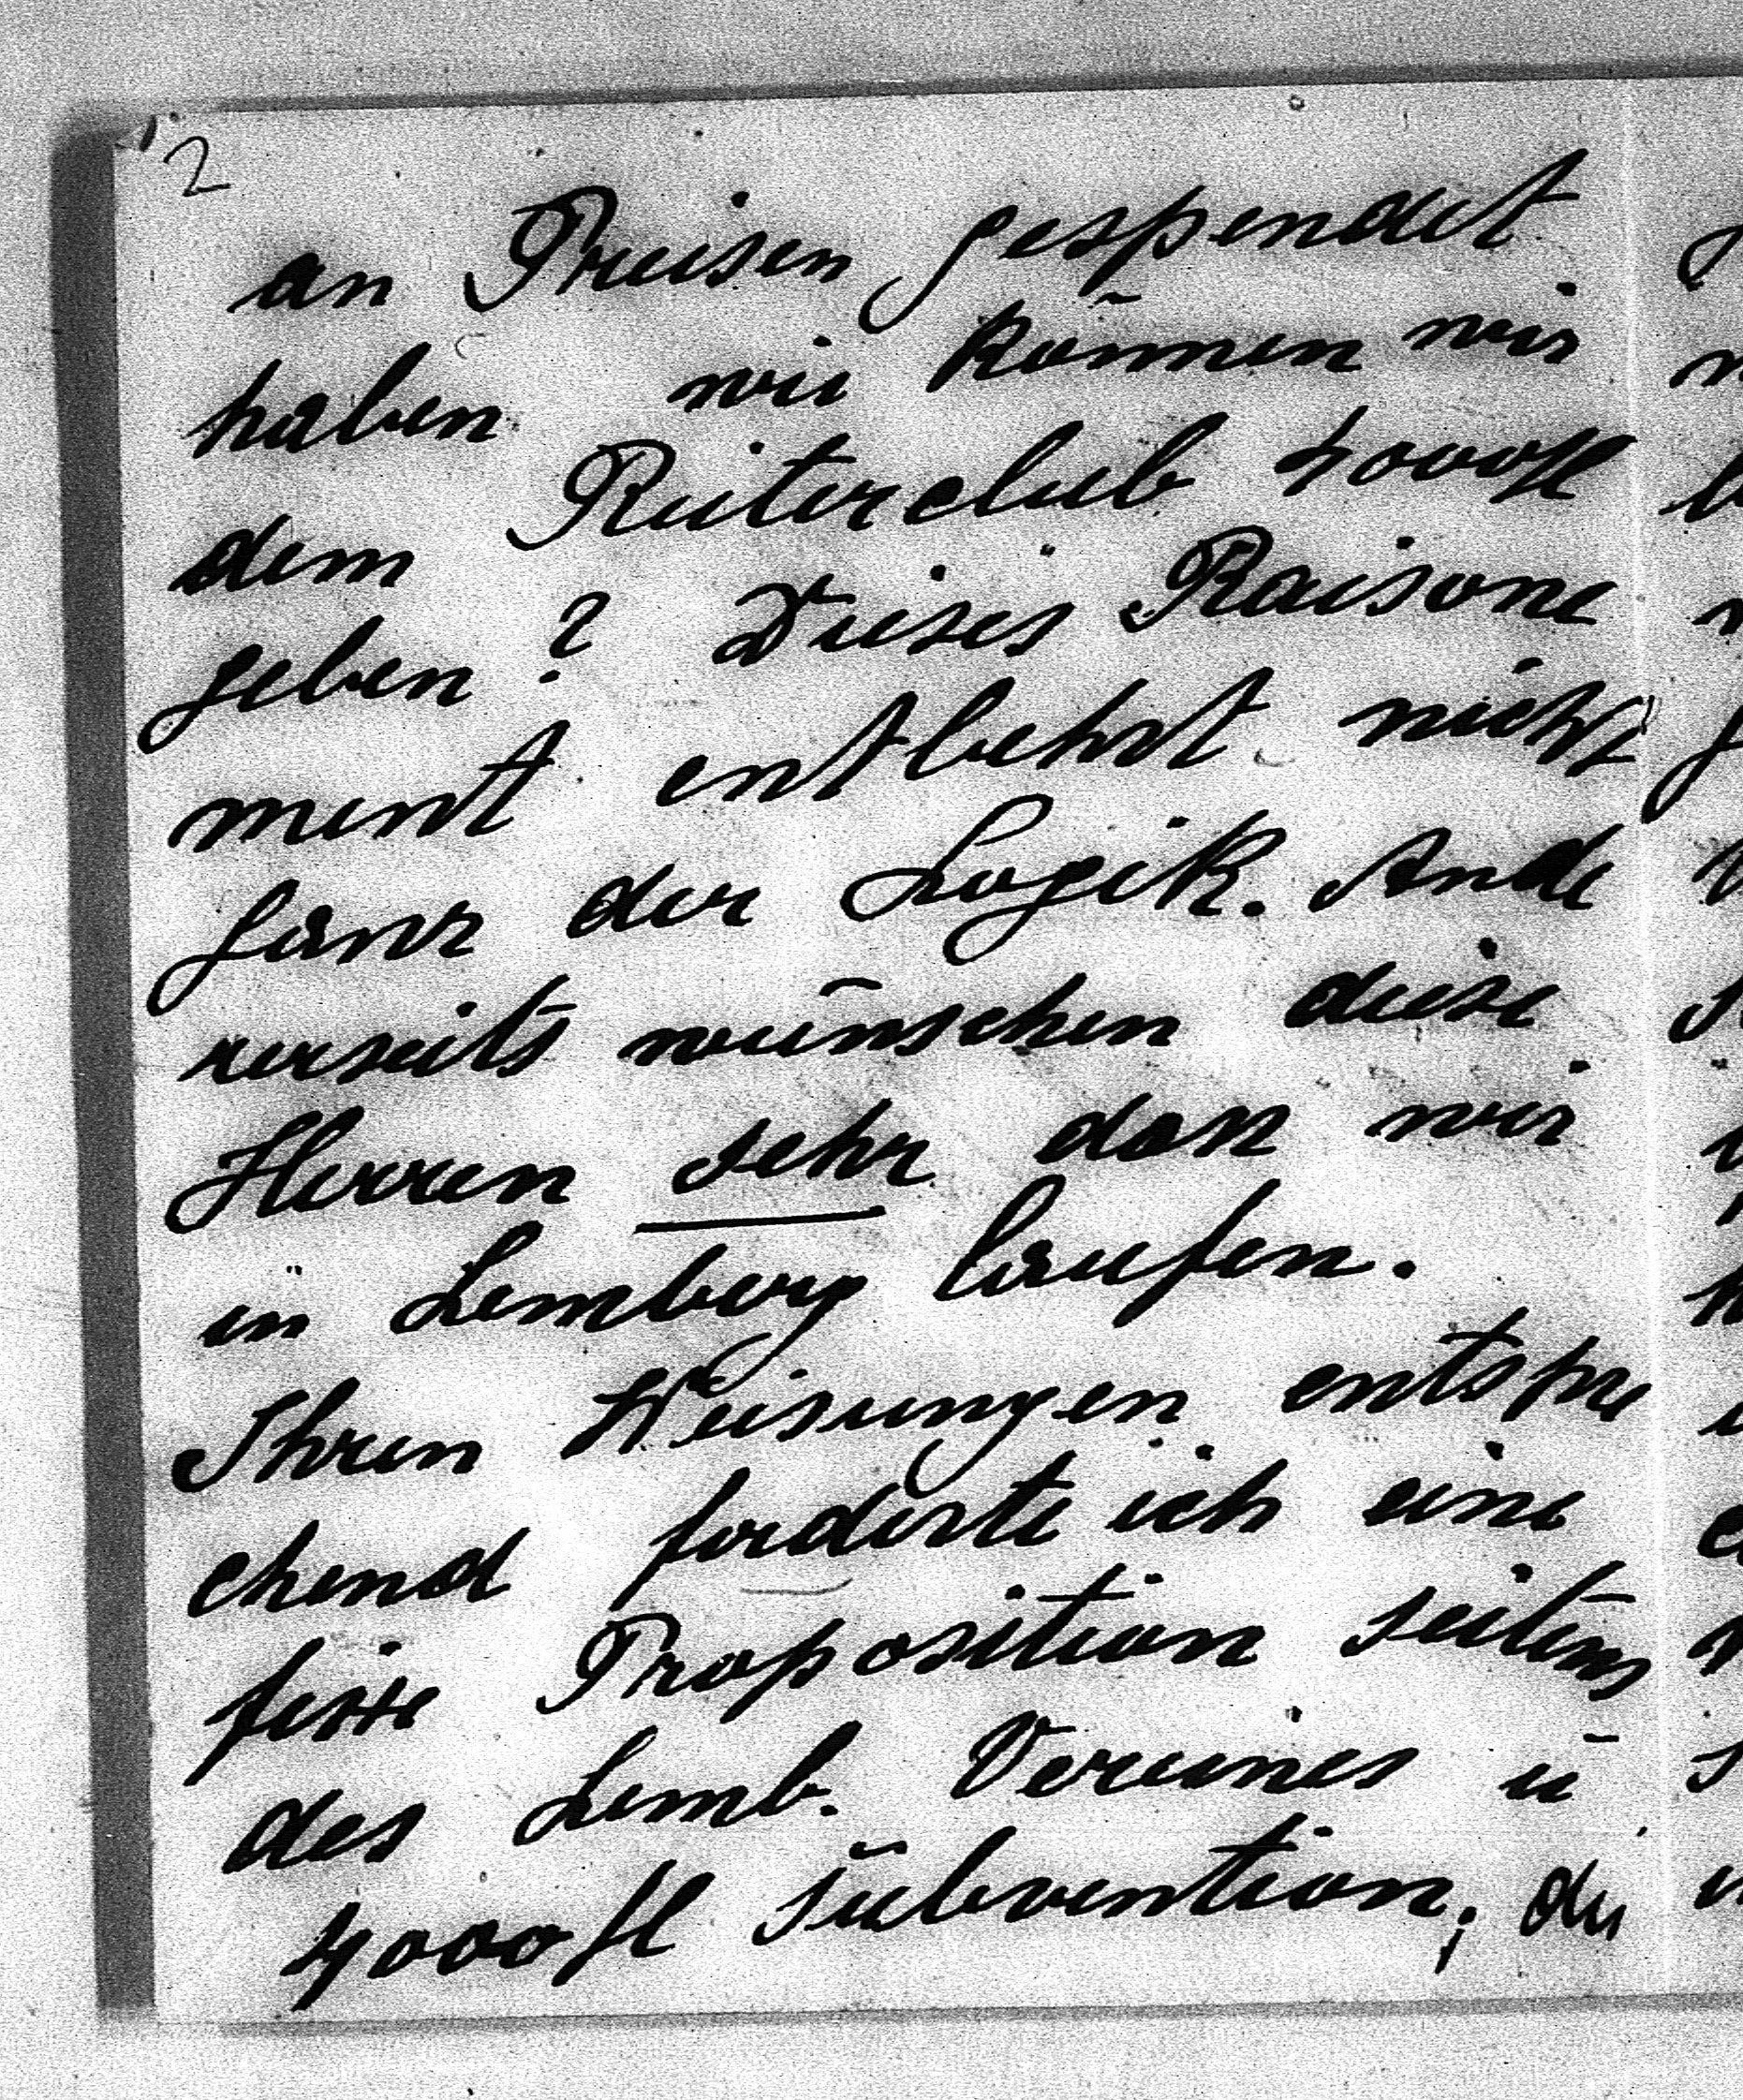 2
an Preisen gespendet
haben wie können wir
dem Reiterclub 4000fl
geben? Dieses Raisone
ment entbehrt nicht
ganz der Logik. Ande
rerseits wünschen diese
Herren sehr dass wir
in Lemberg laufen.
Ihren Weisungen entspre
chend forderte ich eine
fixe Proposition seitens
des Lemb. Vereines u
4000fl Subvention; die